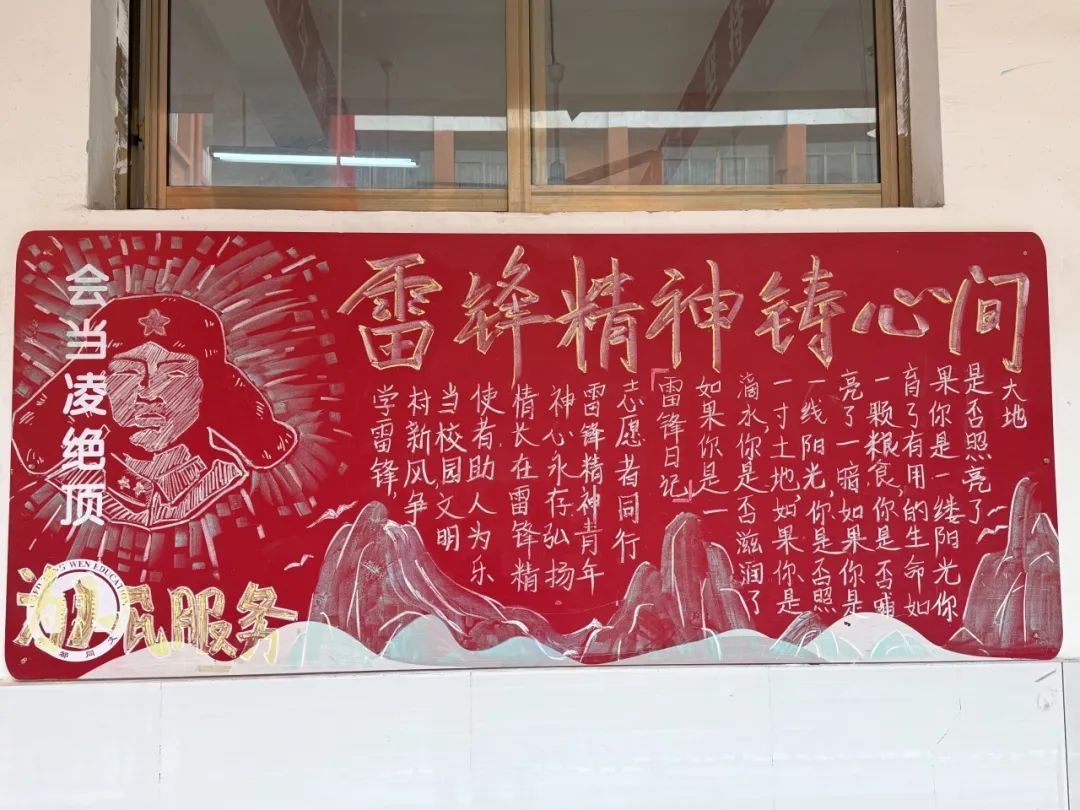 雷锋精神铸心间
会当凌绝顶
学雷锋,
村新风争
当校园文明
使者,助人为乐
情长在雷锋精
神心永存弘扬
雷锋精神青年
志愿者同行
「雷锋日记」
如果你是一
滴水,你是否滋润了
一寸土地,如果你是
一线阳光,你是否照
亮了一暗,如果你是
一颗粮食,你是否哺
育了有用的生命如
果你是一缕阳光你
是否照亮了
大地
为人民服务
WEN